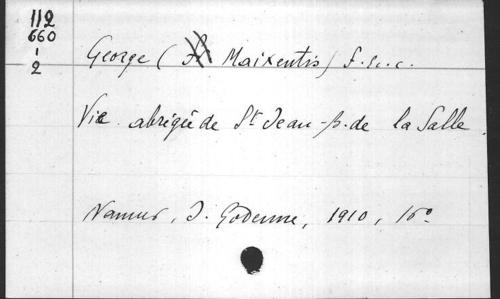 112
660
1
2
George (Maixentis) f. s. c.
Vie abrégée de St Jean-B. de la Salle
Namur, J. Godenne, 1910, 16º